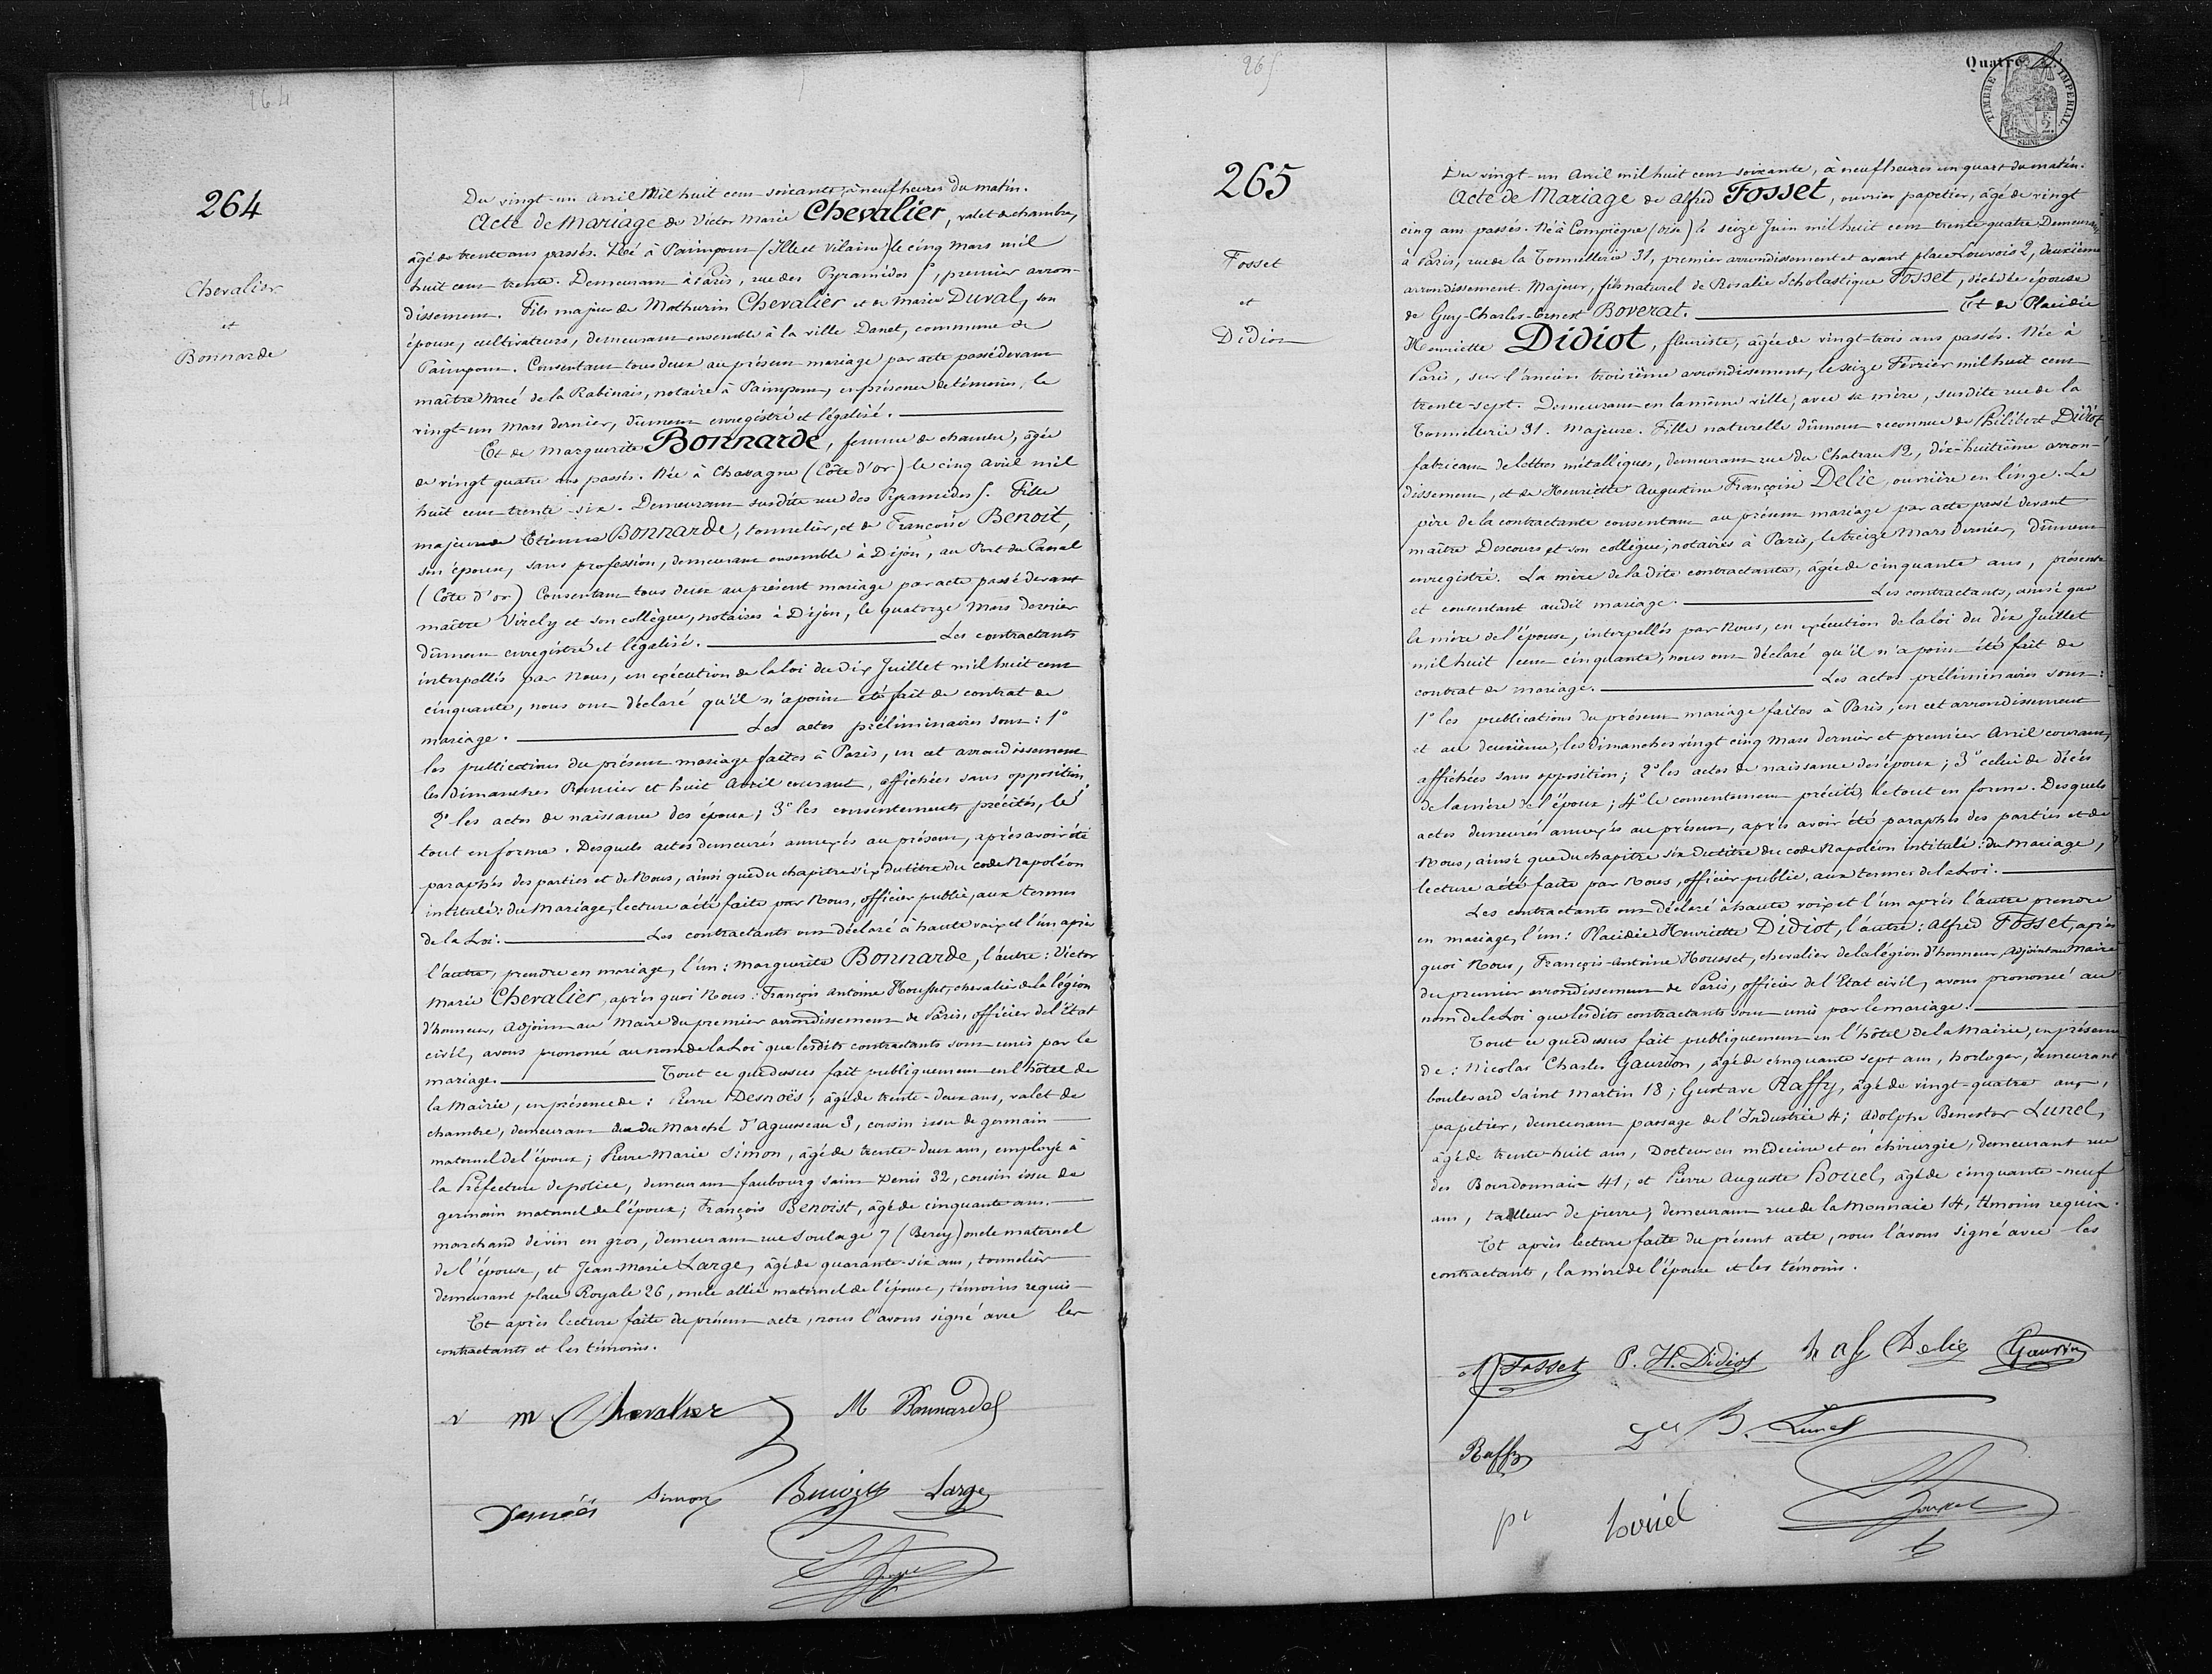 264
264
Chevalier
et
Bonnarde
Du vingt-un avril Mil huit cent soixante, à neuf heures du matin.
Acte de Mariage de Victor Marie Chevalier, valet de chambre,
âgé de trente ans passés. Né à Paimpont (Ille et Vilaine) le cinq Mars mil
huit cent trente. Demeurant à Paris, rue des Pyramides 5, premier arron-
dissement. Fils majeur de Mathurin Chevalier et de Marie Duval, son
épouse, cultivateurs, demeurant ensemble à la ville Danet, commune de
Paimpont. Consentant tous deux au présent mariage par acte passé devant
maître Macé de la Rabinais, notaire à Paimpont, en présence de témoins, le
vingt-un Mars dernier, dûment enregistré et légalisé.
Et de Marguerite Bonnarde, femme de chambre, âgée
de vingt quatre ans passés. Née à Chavagne (Côte d'or) le cinq avril mil
huit cent trente six. Demeurant susdite rue des Pyramides 5. Fille
majeure de Etienne Bonnarde, tonnelier, et de Françoise Benoit,
son épouse, sans profession, demeurant ensemble à Dijon, au Port du Canal
(Côte d'or) Consentant tous deux au présent mariage par acte passé devant
maître Virely et son collègue, notaires à Dijon, le quatorze Mars dernier
dûment enregistré et légalisé. Les contractants
interpellés par Nous, en exécution de la loi du Dix Juillet mil huit cent
cinquante, nous ont déclaré qu'il n'a point été fait de contrat de
mariage. Les actes préliminaires sont: 1°
les publications du présent mariage faites à Paris, en cet arrondissement
les dimanches Premier et huit Avril courant, affichées sans opposition,
2° les actes de naissance des époux; 3° les consentements précités, le
tout en forme. Desquels actes demeurés annexés au présent, après avoir été
paraphés des parties et de Nous, ainsi que du chapitre six du titre du code Napoléon
intitulé: du Mariage, lecture a été faite par Nous, officier public, aux termes
de la Loi. Les contractants ont déclaré à haute voix et l'un après
l'autre, prendre en mariage, l'un: Marguerite Bonnarde, l'autre: Victor
Marie Chevalier, après quoi Nous: François Antoine Housset, chevalier de la légion
d'honneur, Adjoint au Maire du premier arrondissement de Paris, officier de l'Etat
civil, avons prononcé au nom de la Loi que lesdits contractants sont unis par le
mariage. Tout ce que dessus fait publiquement en l'hôtel de
la Mairie, en présence de: Pierre Desnoës, âgé de trente-deux ans, valet de
chambre, demeurant rue du Marché d'Aguesseau 3, cousin issu de germain
maternel de l'époux; Pierre-Marie Simon, âgé de trente-deux ans, employé à
la Préfecture de police, demeurant faubourg Saint Denis 32, cousin issu de
germain maternel de l'époux; François Benoist, âgé de cinquante ans.
marchand de vin en gros, demeurant rue Soulage 7 (Bercy) oncle maternel
de l'épouse, et Jean-Marie Large, âgé de quarante-six ans, tonnelier
demeurant place Royale 26, oncle allié maternel de l'épouse, témoins requis
Et après lecture faite du présent acte, nous l'avons signé avec les
contractants et les témoins.
v m Chevalier M Bonnarde
Desnoës Simon Benoist Large
265
Quatre
TIMBRE IMPERIAL
2.
SEINE
265
Fosset
et
Didiot
Du vingt-un Avril mil huit cent soixante, à neuf heures un quart du matin.
Acte de Mariage de Alfred Fosset, ouvrier papetier, âgé de vingt
cinq ans passés. Né à Compiègne (oise) le seize Juin mil huit cent trente quatre Demeurant
à Paris, rue de la Tonnellerie 31, premier arrondissement et avant place Louvois 2, deuxième
arrondissement. Majeur, fils naturel de Rosalie Scholastique Fosset, décédée épouse
de Guy-Charles-Ernest Boverat. Et de Placidie
Henriette Didiot, fleuriste, âgée de vingt-trois ans passés. Née à
Paris, sur l'ancien troisième arrondissement, le seize Février mil huit cent
trente-sept. Demeurant en la même ville, avec sa mère, susdite rue de la
Tonnellerie 31. Majeure. Fille naturelle dûment reconnue de Philibert Didiot
fabricant de lettres métalliques, demeurant rue du Chateau 12, dix-huitième arron-
dissement, et de Henriette Augustine Françoise Delie, ouvrière en linge. Le
père de la contractante consentant au présent mariage par acte passé devant
maître Descours et son collègue, notaires à Paris, le treize Mars dernier, dûment
enregistré. La mère de la dite contractante, âgée de cinquante ans, présente
et consentant audit mariage. Les contractants, ainsi que
la mère de l'épouse, interpellés par Nous, en exécution de la loi du dix Juillet
mil huit cent cinquante, nous ont déclaré qu'il n'a point été fait de
contrat de mariage. Les actes préliminaires sont:
1° les publications du présent mariage faites à Paris, en cet arrondissement
et au deuxième, les dimanches vingt cinq Mars dernier et premier Avril courant,
affichées sans opposition; 2° les actes de naissance des époux; 3° celui de décès
de la mère de l'époux; 4° le consentement précité, le tout en forme. Desquels
actes demeurés annexés au présent, après avoir été paraphés des parties et de
Nous, ainsi que du chapitre six du titre du code Napoléon intitulé: du Mariage,
lecture a été faite par Nous, officier public, aux termes de la Loi.
Les contractants ont déclaré à haute voix et l'un après l'autre prendre
en mariage, l'un: Placidie Henriette Didiot, l'autre: Alfred Fosset, après
quoi Nous, François-Antoine Housset, chevalier de la légion d'honneur, Adjoint au Maire
du premier arrondissement de Paris, officier de l'Etat civil, avons prononcé au
nom de la Loi que lesdits contractants sont unis par le mariage.
Tout ce que dessus fait publiquement en l'hôtel de la Mairie, en présence
de: Nicolas Charles Gaurion, âgé de cinquante sept ans, horloger, demeurant
boulevard Saint Martin 18; Gustave Raffy, âgé de vingt-quatre ans,
papetier, demeurant passage de l'Industrie 4; Adolphe Benestor Lunel,
âgé de trente-huit ans, Docteur en médecine et en chirurgie, demeurant rue
des Bourdonnais 41, et Pierre Auguste Houel, âgé de cinquante-neuf
ans, tailleur de pierre, demeurant rue de la Monnaie 14, témoins requis.
Et après lecture faite du présent acte, nous l'avons signé avec les
contractants, la mère de l'épouse et les témoins.
A Fosset P. H. Didiot h a f Delie Gaurion
Raffy Dr B. Lunel
pe houël